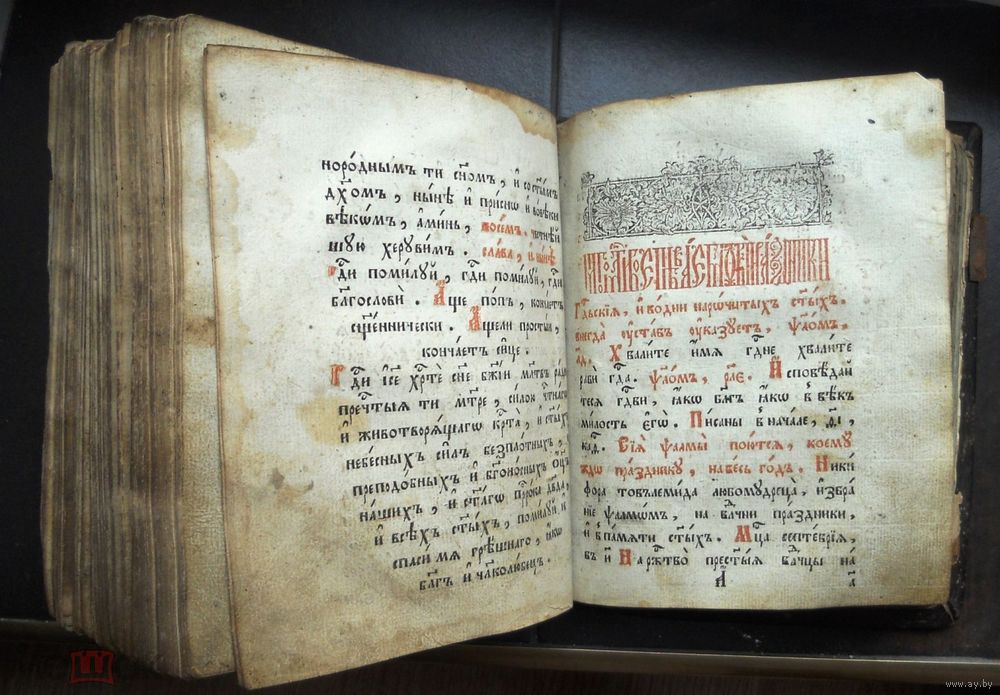 норо́днымъ ти сн҃омъ, и҆ со ст҃ы́мъ
дх҃омъ, ны́нѣ и҆ при́снѡ и҆ во́вѣки
вѣкѡ́мъ, а҆ми́нь, посе́мъ. честнѣ́й
шую херуви́м. сла́ва, и҆ ны́нѣ
гдⷭ҇и поми́луй, гдⷭ҇и поми́луй, гдⷭ҇и
бл҃гословѝ. А҆́ще по́пъ, конча́етъ
сщ҃е́ннически. А҆́щели просты́й,
конча́етъ си́це.
Гдⷭ҇и і҆с҃е хрⷭ҇тѐ сн҃е бж҃їи мл҃твъ ра́ди
пречⷭ҇тыѧ ти мт҃ре, си́лою
и҆ животворѧ́щагѡ крⷭ҇та̀, и҆ ст҃ы́хъ
небе́сныхъ си́лъ безпло́тныхъ,
преподо́бныхъ и҆ бг҃оно́сныхъ ѻ҆ц҃ъ
на́шихъ, и҆ ст҃а́гѡ прⷪ҇ро́ка дв҃да,
и҆ всѣ́хъ ст҃ы́хъ, поми́луй, и҆
спаси́ мѧ грѣ́шнаго, ꙗ҆́кѡ
бл҃гъ и҆ чл҃колю́бецъ.
пра́здники
Гдⷭ҇ьскїѧ, и҆ во дни наро́читыхъ ст҃ы́хъ.
внегда̀ ѹ҆ста́въ ѹ҆ка́зуетъ, ѱало́мъ,
Хвали́те и҆́мѧ гдⷭ҇не хвали́те
рабѝ гдⷭ҇а. ѱало́мъ, рл҃є. И҆сповѣ́дай
тесѧ гдⷭ҇ви, ꙗ҆́кѡ бл҃гъ ꙗ҆́кѡ в̾ вѣ́къ
ми́лость є҆гѡ̀. Пи́саны в̾ нача́ле,
к҃д. Сїѧ̀ ѱалмы̀ пою́тсѧ, коему́
ждѡ пра́зднику, на ве́сь го́дъ. Ники́
фора товлеми́да любомудреца̀, и҆збра́
нїе ѱалмѡ́мъ, на влⷣчни пра́здники,
и҆ в̾ па́мѧти ст҃ы́хъ. Мцⷭ҇а септе́брїѧ,
въ и҃ На ржⷭ҇тво̀ прест҃ы́ѧ влⷣчцы на́
а҃